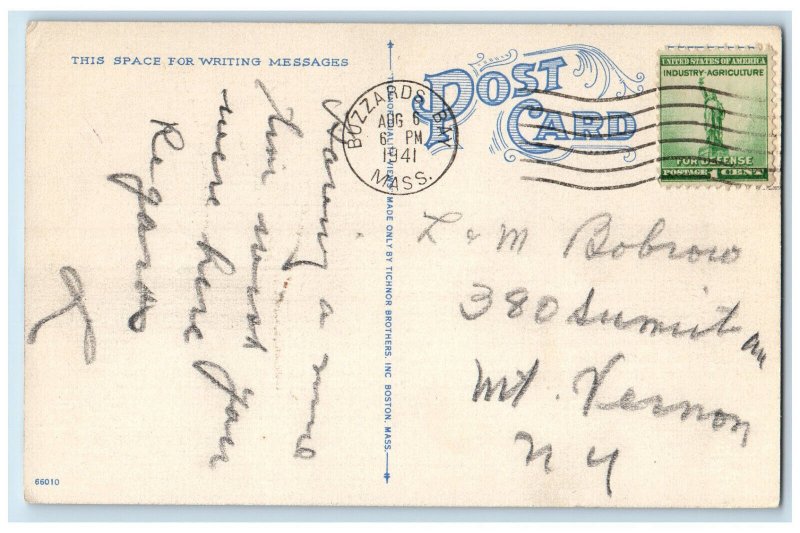 THIS SPACE FOR WRITING MESSAGES
Having a
time
were here
Regards
66010
TICHNOR QUALITY VIEWS MADE ONLY BY TICHNOR BROTHERS, INC. BOSTON, MASS.
POST
CARD
BUZZARDS BAY
AUG 6
6 PM
1941
MASS.
UNITED STATES OF AMERICA
INDUSTRY-AGRICULTURE
FOR DEFENSE
POSTAGE 1 CENT
L & M Bobrow
380 Summit
Mt. Vernon
N Y